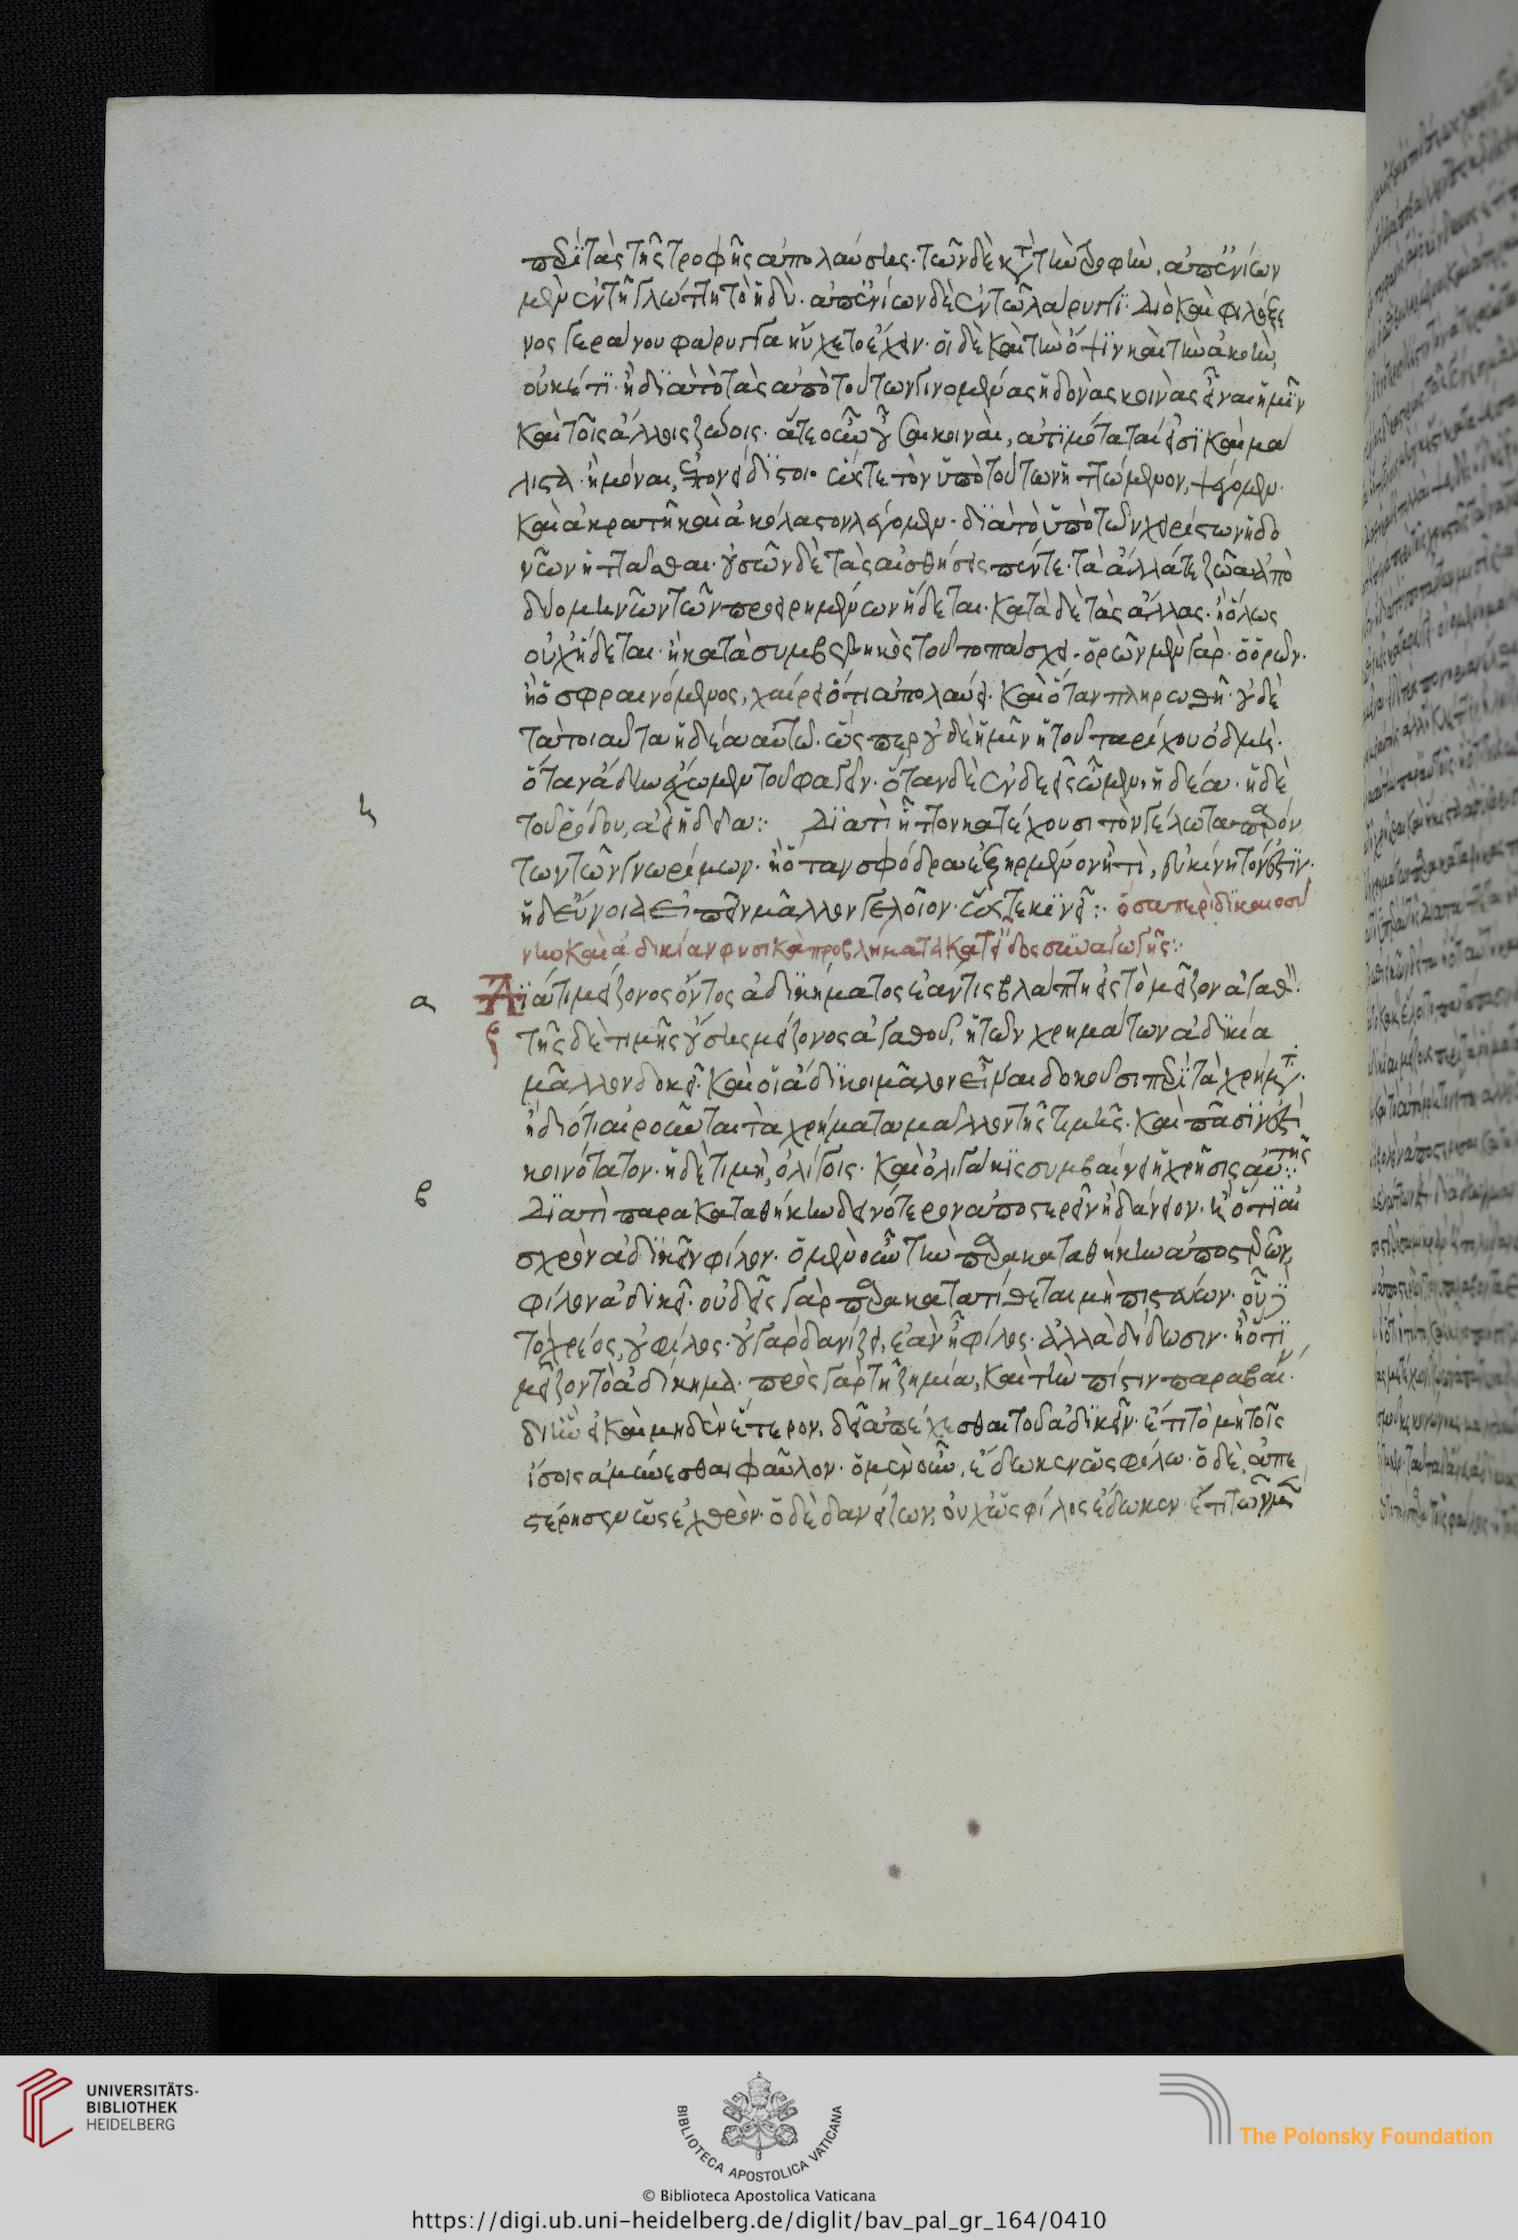 περὶ τὰς τῆς τροφῆς ἀπολαύσεις. τῶν δὲ κατὰ τὴν τροφὴν, ἀπ' ἐνίων
μὲν ἐν τῇ γλώττῃ τὸ ἡδύ. ἀπ' ἐνίων δὲ ἐν τῷ λάρυγγι. διὸ καὶ φιλόξε
νος γεράνου φάρυγγα ηὔχετο ἔχειν. οἱ δὲ κατὰ τὴν ὄψιν καὶ τὴν ἀκοὴν,
οὐκέτι. ἢ διὰ τὸ τὰς ἀπὸ τούτων γινομένας ἡδονὰς κοινὰς εἶναι ἡμῖν
καὶ τοῖς ἄλλοις ζώοις. ἅτε οὖν οὖσαι κοιναὶ, ἀτιμόταταί εἰσι καὶ μά
λιστα ἢ μόναι, ἐπονείδιστοι. ὥστε τὸν ὑπὸ τούτων ἡττώμενον, ψέγομεν.
καὶ ἀκρατῆ καὶ ἀκόλαστον λέγομεν. διὰ τὸ ὑπὸ τῶν χειρίστων ἡδο
νῶν ἡττᾶσθαι. οὐσῶν δὲ τὰς αἰσθήσεις πέντε. τὰ ἄλλά τε ζῷα ἀπὸ
δύο μόνων τῶν προειρημένων ἥδεται. κατὰ δὲ τὰς ἄλλας. ἢ ὅλως
οὐχ ἥδεται. ἢ κατὰ συμβεβηκὸς τοῦτο πάσχει. ὁρῶν μὲν γὰρ. ὁ ὁρῶν.
ἢ ὀσφραινόμενος, χαίρει ὅτι ἀπολαύει. καὶ ὅταν πληρωθῇ. οὐδὲ
τὰ τοιαῦτα ἡδέα αὐτῷ. ὥσπερ οὐδὲ ἡμῖν ἡ τοῦ ταρίχου ὀδμή.
ὅταν ἄδην ἔχωμεν τοῦ φαγεῖν. ὅταν δὲ ἐνδεεῖς ὦμεν, ἡδέα. ἡ δὲ
τοῦ ῥόδου, ἀεὶ ἡδεῖα: Διατὶ ἧττον κατέχουσι τὸν γέλωτα παρόν
των τῶν γνωρίμων. ἢ ὅταν σφόδρα ἐξηρμένον ᾖ τὶ, εὐκίνητόν ἐστιν.
ἡ δ' εὔνοια εἰπεῖν μᾶλλον γελοῖον. ὥστε κινεῖ: ὅσα περὶ δικαιοσύ
νην καὶ ἀδικίαν φυσικὰ προβλήματα κατ' εἶδος συναγωγῆς:
η
α Διάτι μείζονος ὄντος ἀδικήματος ἐάν τις βλάπτῃ εἰς τὸ μεῖζον ἀγαθόν.
τῆς δὲ τιμῆς οὔσης μείζονος ἀγαθοῦ, ἡ τῶν χρημάτων ἀδικία
μᾶλλον δοκεῖ. καὶ οἱ ἄδικοι μᾶλον εἶναι δοκοῦσι περὶ τὰ χρήματα.
ἢ διότι αἱροῦνται τὰ χρήματα μᾶλλον τῆς τιμῆς. καὶ πᾶσίν ἐστι
κοινότατον. ἡ δὲ τιμὴ, ὀλίγοις. καὶ ὀλιγάκις συμβαίνει ἡ χρῆσις αὐτῆς:
β Διατὶ παρακαταθήκην δεινότερον ἀποστερεῖν ἢ δάνειον. ἢ ὅτι αἰ
σχρὸν ἀδικεῖν φίλον. ὁ μὲν οὖν τὴν παρακαταθήκην ἀποστερῶν,
φίλον ἀδικεῖ. οὐδεὶς γὰρ παρακατατίθεται μὴ πιστεύων. οὗ δὲ
τὸ χρέος, οὐ φίλος. οὐ γὰρ δανίζει, ἐὰν ᾖ φίλος. ἀλλὰ δίδωσιν. ἢ ὅτι
μεῖζον τὸ ἀδίκημα. πρὸς γὰρ τῇ ζημίᾳ, καὶ τὴν πίστιν παραβαί.
δι' ἣν εἰ καὶ μηδὲν ἕτερον, δεῖ ἀπέχεσθαι τοῦ ἀδικεῖν. ἔτι τὸ μὴ τοῖς
ἴσοις ἀμύνεσθαι φαῦλον. ὁ μὲν οὖν, ἔδωκεν ὡς φίλῳ. ὁ δὲ, ἀπε
στέρησεν ὡς ἐχθρὸν. ὁ δὲ δανείζων, οὐχ ὡς φίλος ἔδωκεν. ἔτι τῶν μὲν
UNIVERSITÄTS-
BIBLIOTHEK
HEIDELBERG
BIBLIOTECA APOSTOLICA VATICANA
The Polonsky Foundation
© Biblioteca Apostolica Vaticana
https://digi.ub.uni-heidelberg.de/diglit/bav_pal_gr_164/0410